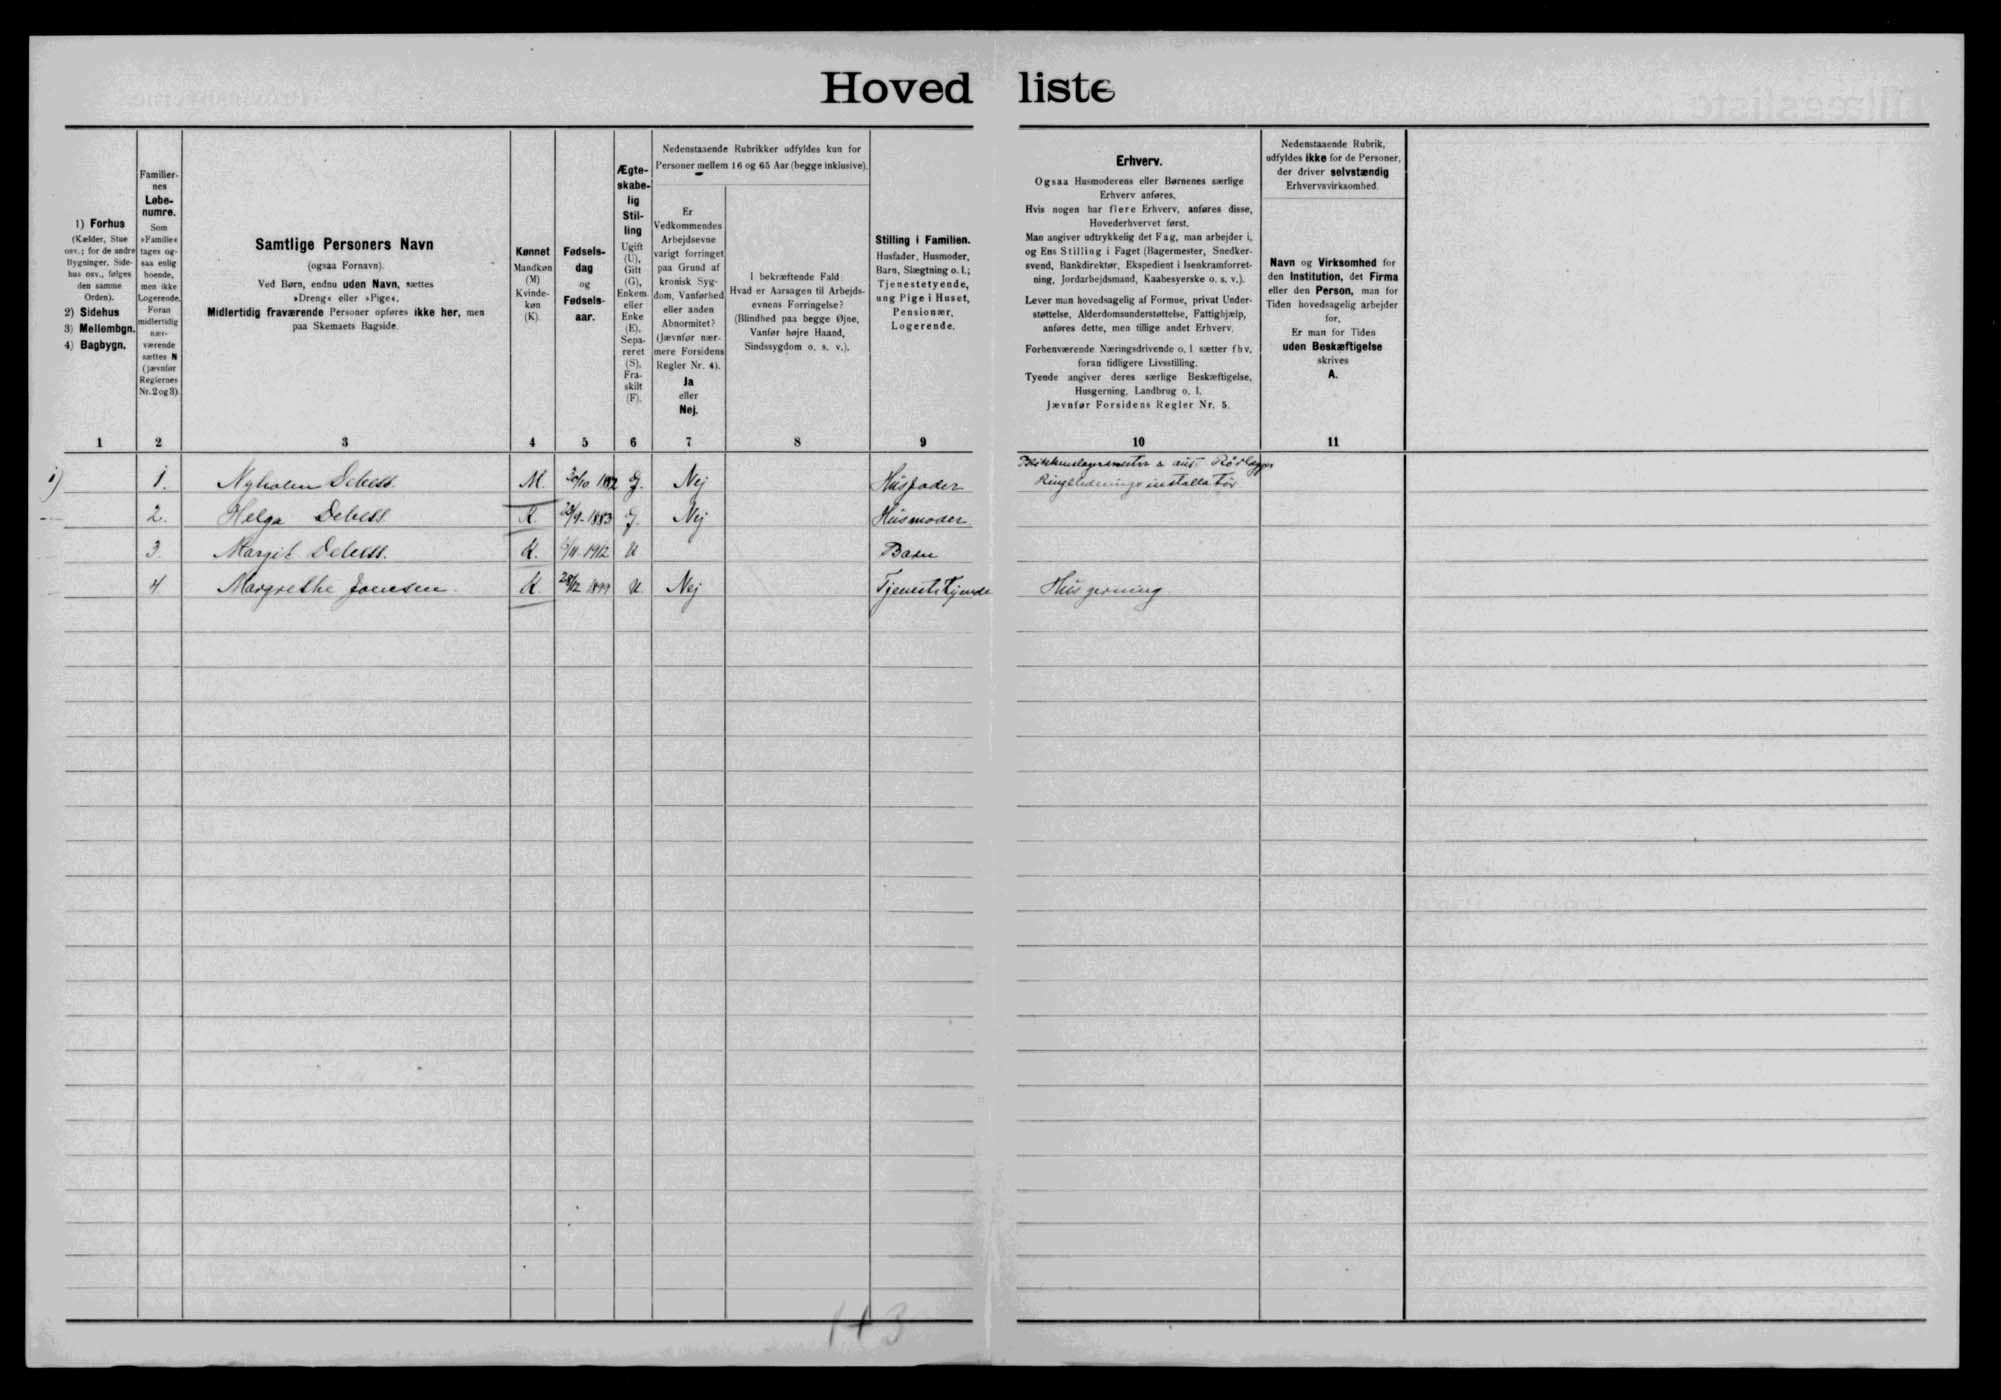 Hovedliste
1) Forhus
(Kælder, Stue
osv.; for de andre
Bygninger, Side-
hus osv., følges
den samme
Orden).
2) Sidehus
3) Mellembgn.
4) Bagbygn.
Familier-
nes
Løbe-
numre.
Som
»Familie«
tages og-
saa enlig
boende,
men ikke
Logerende.
Foran
midlertidig
nær-
værende
sættes N
(jævnfør
Reglernes
Nr. 2 og 3).
Samtlige Personers Navn
(ogsaa Fornavn).
Ved Børn, endnu uden Navn, sættes
»Dreng« eller »Pige«.
Midlertidig fraværende Personer opføres ikke her, men
paa Skemaets Bagside.
Kønnet
Mandkøn
(M)
Kvinde-
køn
(K).
Fødsels-
dag
og
Fødsels-
aar.
Ægte-
skabe-
lig
Stil-
ling
Ugift
(U),
Gift
(G),
Enkem.
eller
Enke
(E),
Sepa-
reret
(S),
Fra-
skilt
(F).
Nedenstaaende Rubrikker udfyldes kun for
Personer mellem 16 og 65 Aar (begge inklusive).
Er
Vedkommendes
Arbejdsevne
varigt forringet
paa Grund af
kronisk Syg-
dom, Vanførhed
eller anden
Abnormitet?
(Jævnfør nær-
mere Forsidens
Regler Nr. 4).
Ja
eller
Nej.
I bekræftende Fald:
Hvad er Aarsagen til Arbejds-
evnens Forringelse?
(Blindhed paa begge Øjne,
Vanfør højre Haand,
Sindssygdom o. s. v.).
Stilling i Familien.
Husfader, Husmoder,
Barn, Slægtning o. l.;
Tjenestetyende,
ung Pige i Huset,
Pensionær,
Logerende.
Erhverv.
Ogsaa Husmoderens eller Børnenes særlige
Erhverv anføres.
Hvis nogen har flere Erhverv, anføres disse,
Hovederhvervet først.
Man angiver udtrykkelig det Fag, man arbejder i,
og Ens Stilling i Faget (Bagermester, Snedker-
svend, Bankdirektør, Ekspedient i Isenkramforret-
ning, Jordarbejdsmand, Kaabesyerske o. s. v.).
Lever man hovedsagelig af Formue, privat Under-
støttelse, Alderdomsunderstøttelse, Fattighjælp,
anføres dette, men tillige andet Erhverv.
Forhenværende Næringsdrivende o. l. sætter fhv.
foran tidligere Livsstilling.
Tyende angiver deres særlige Beskæftigelse,
Husgerning, Landbrug o. l.
Jævnfør Forsidens Regler Nr. 5.
Nedenstaaende Rubrik,
udfyldes ikke for de Personer,
der driver selvstændig
Erhvervsvirksomhed.
Navn og Virksomhed for
den Institution, det Firma
eller den Person, man for
Tiden hovedsagelig arbejder
for.
Er man for Tiden
uden Beskæftigelse
skrives
A.
1 2 3 4 5 6 7 8 9 10 11
1) 1. Nyholm Debess. M G. Nej Husfader Blikkenslagermester & aut. Rørlægger
Ringledningsinstallatør
2. Helga Debess K. 1883 G. Nej Husmoder
3. Margit Debess. K. 1912 U Barn
4. Margrethe Joensen. K. 28/12 U. Nej Tjenestetyende Husgerning
1+3